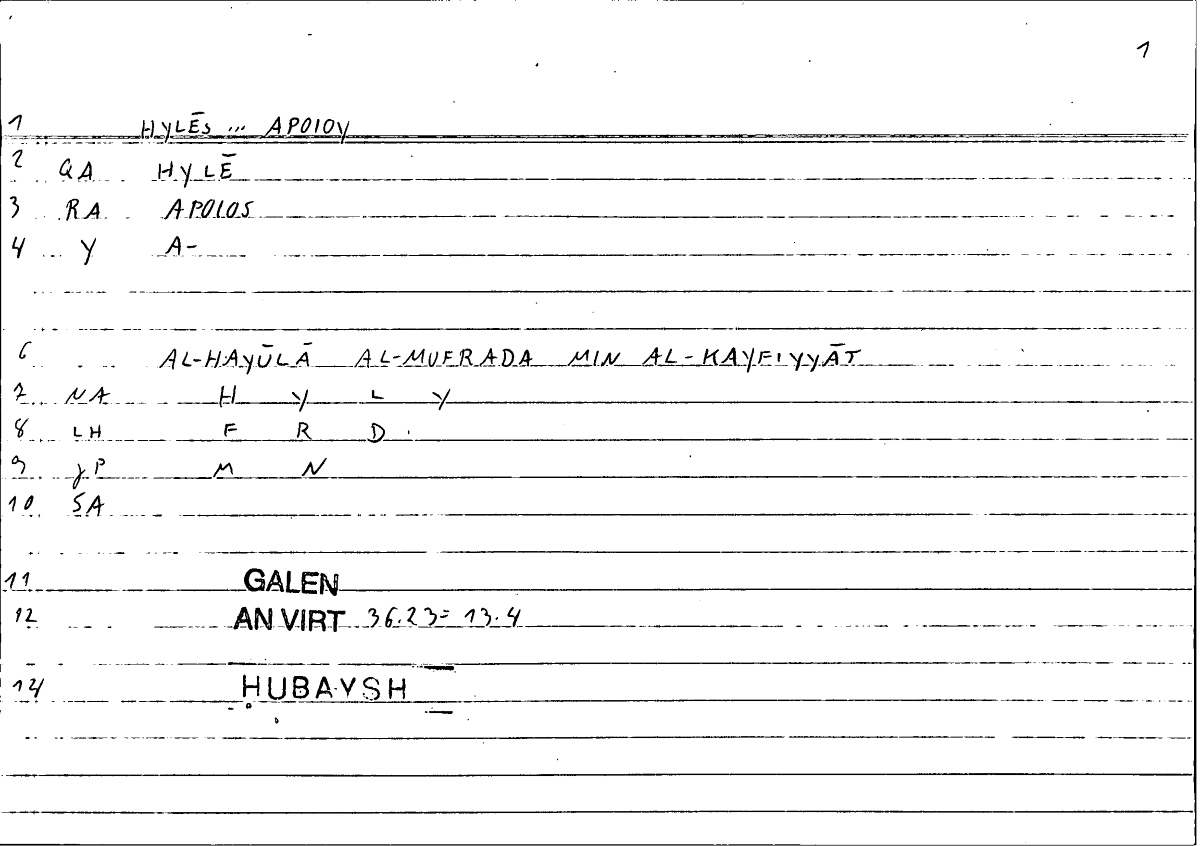 1
1 HYLĒS ... APOIOY
2 QA HYLĒ
3 RA APOIOS
4 Y A-
6 AL-HAYŪLĀ AL-MUFRADA MIN AL-KAYFIYYĀT
7 NA H Y L Y
8 LH F R D
9 γP M N
10 SA
11 GALEN
12 AN VIRT 36.23= 13.4
14 ḤUBAYSH